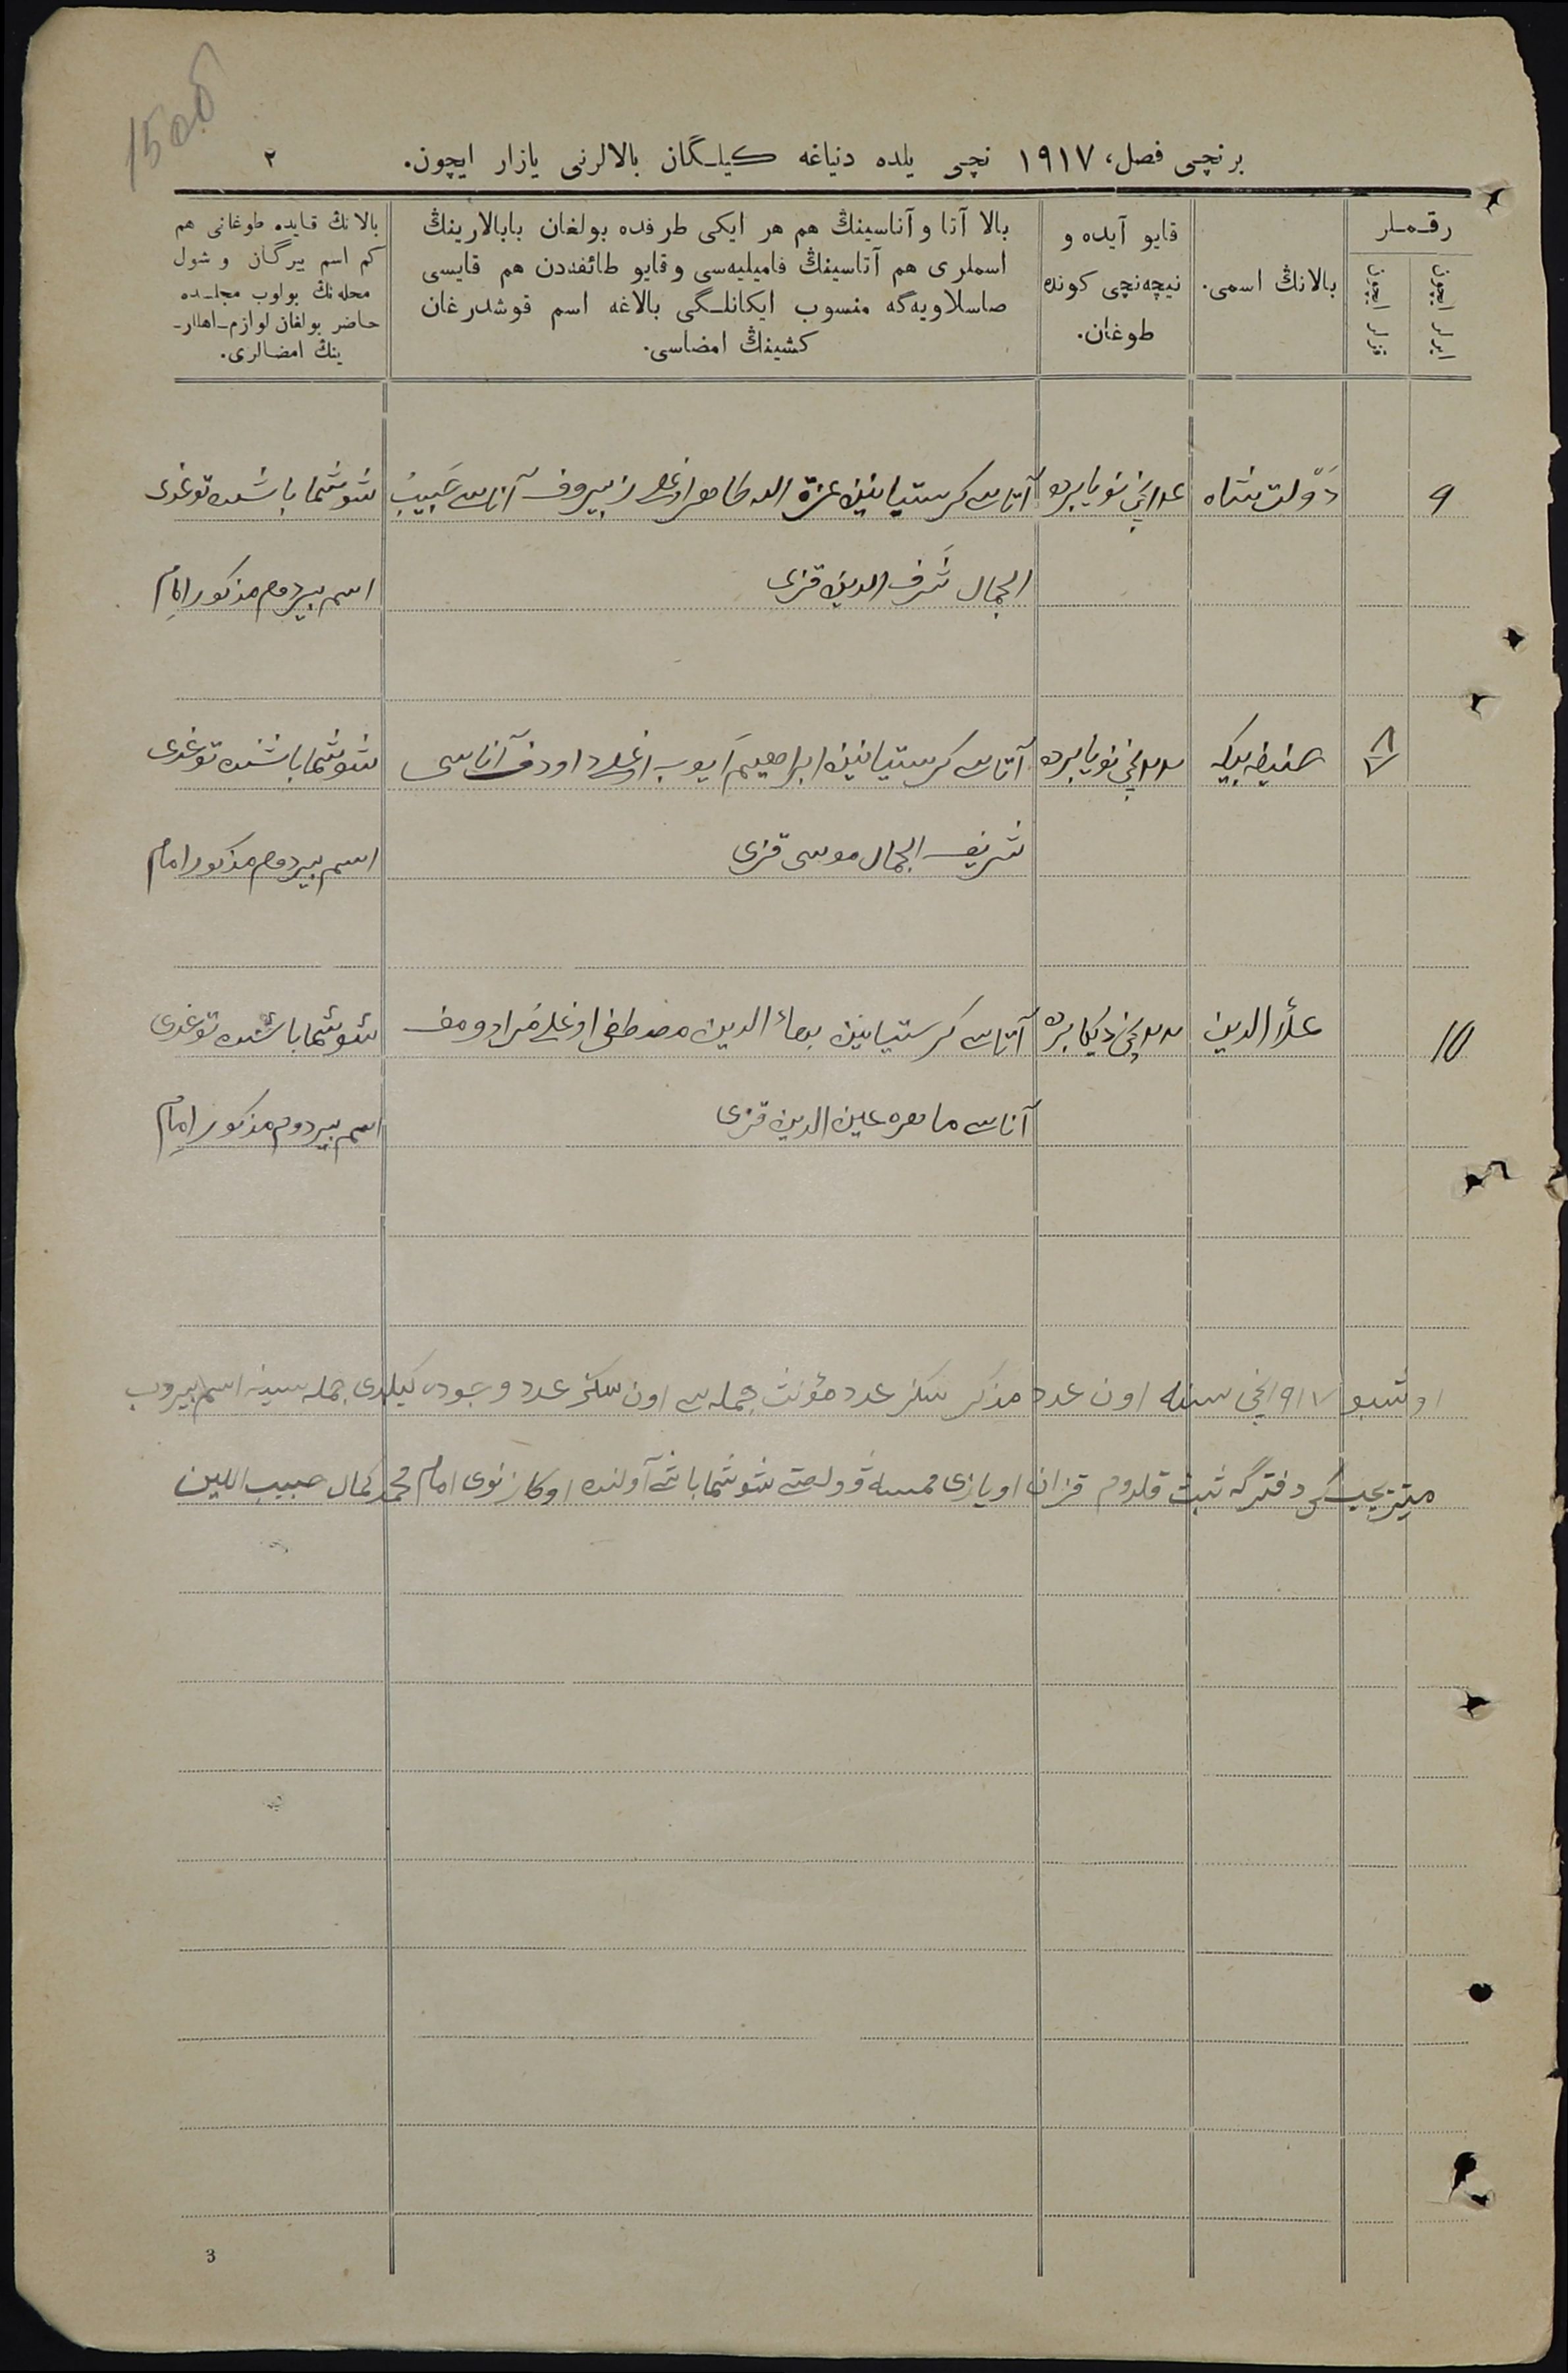 150б
برنچی فصل، ۱۹۱۷ نچی یلده دنیاغه کیلـگان بالالرنی یازار ایچون. ۲
رقـملر
ایرلر ایچون
قزلر ایچون
بالانڭ اسمی.
قایو آیده و
نیچه‌نچی کونده
طوغان.
بالا آتا و آناسینڭ هم هر ایکی طرفده بولغان بابالارینڭ
اسملری هم آتاسینڭ فامیلیه‌سی و قایو طائفه‌دن هم قایسی
صاسلاویه‌گه منسوب ایکانلـگی بالاغه اسم قوشدرغان
کشینڭ امضاسی.
بالانڭ قایده طوغانی هم
کم اسم بیرگان و شول
محله‌نڭ بولوب مجلـده
حاضر بولغان لوازم-اهللر-
ینڭ امضالری.
9 دولت شاه نچی نویابرده آتاسی کرستیانین عزة الله اوغلی زبیروف آناسی حبیب شوشماباشنده توغدی
الجمال شرف الدین قزی اسم بیردوم مذکور امام
بیکه ۲۲نچی نویابرده آتاسی کرستیانین ابراهیم ایوب اوغلی داودف آناسی شوشماباشنده توغدی
شریف الجمال موسی قزی اسم بیردوم مذکور امام
10 علأ الدین ۲۲نچی دیکابرده آتاسی کرستیانین بهاء الدین مصطفی اوغلی مرادومف شوشماباشنده توغدی
آناسی ماهره عین الدین قزی اسم بیردوم مذکور امام
اوشبو ۱۹۱۷نچی سنه اون عدد مذکر سکز عدد مؤنث جمله‌سی اون سکز عدد وجوده کیلدی جمله‌سینه اسم بیروب
میتریچیسکی دفترگه ثبت قلدوم قزان اویازی ولصتی شوشماباشی آولنده اوکازنوی امام محمد کمال حبیب اللین
3